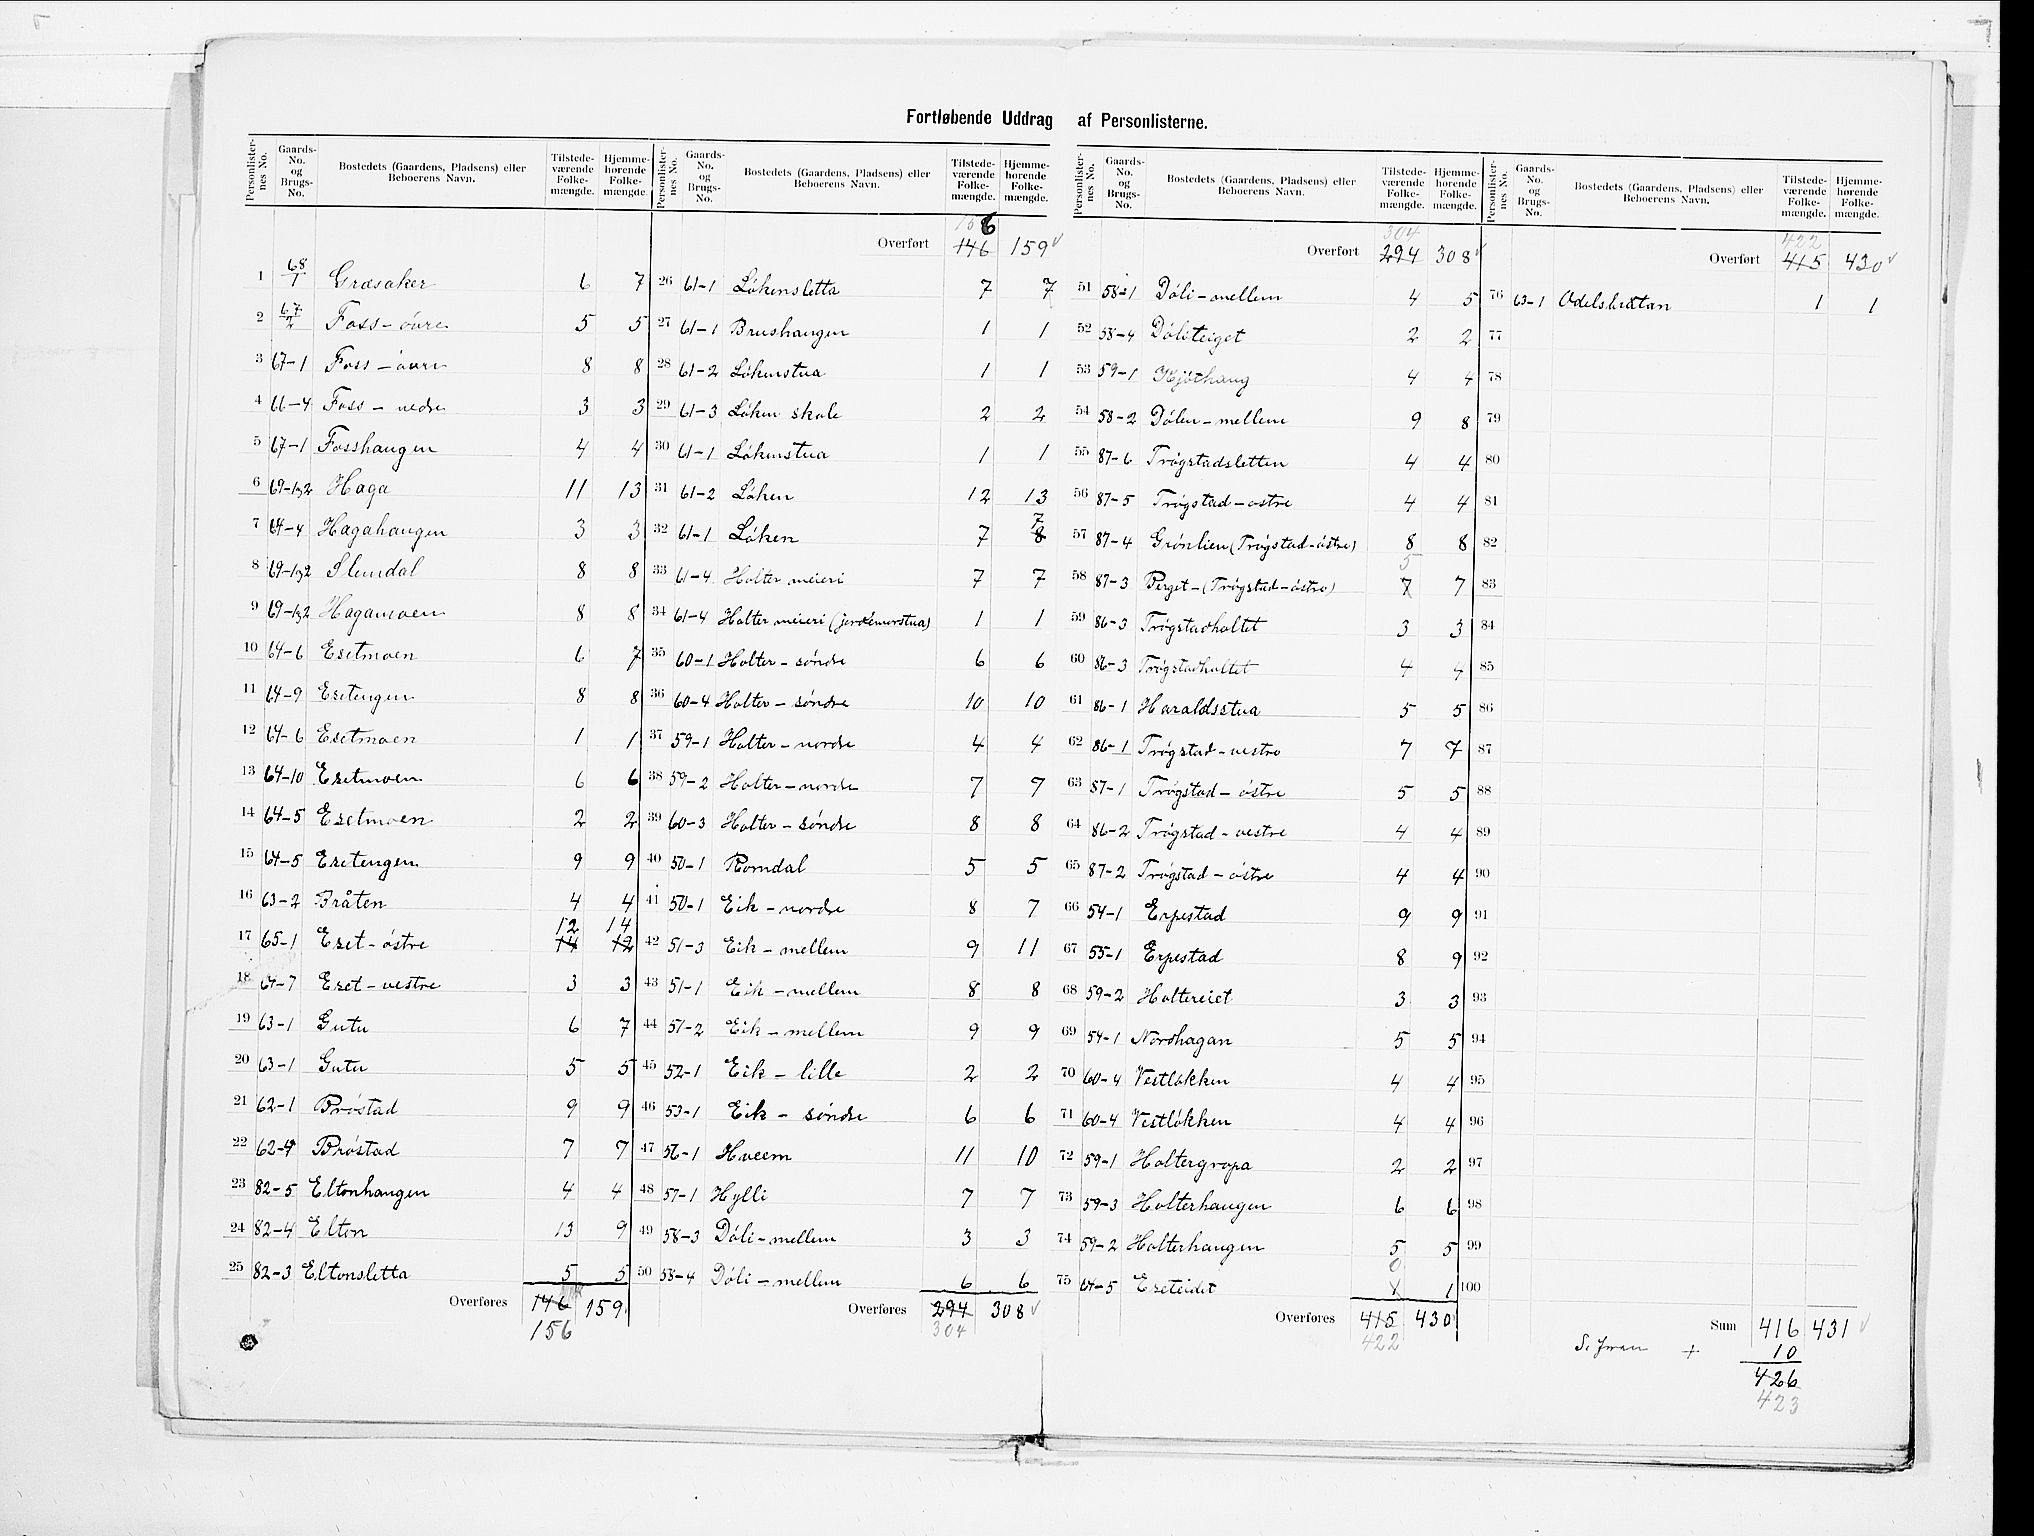 Fortløbende Uddrag af Personlisterne.
Personlisternes No. Gaards-No. og Brugs-No. Bostedets (Gaardens, Pladsens) eller Beboerens Navn. Tilstedeværende Folkemængde. Hjemmehørende Folkemængde.
1 68/1 Græsaker 6 7
2 67/2 Foss-övre 5 5
3 67-1 Foss-övre 8 8
4 66-4 Foss-nedre 3 3
5 67-1 Fosshaugen 4 4
6 69-1,2 Haga 11 13
7 64-4 Hagahaugen 3 3
8 69-1,2 Slemdal 8 8
9 69-1,2 Hagamoen 8 8
10 64-6 Esetmoen 6 7
11 64-9 Esetengen 8 8
12 64-6 Esetmoen 1 1
13 64-10 Esetmoen 6 6
14 64-5 Esetmoen 2 2
15 64-5 Esetengen 9 9
16 63-2 Bråten 4 4
12 14
17 65-1 Eset-östre 14 12
18 64-7 Eset-vestre 3 3
19 63-1 Gutu 6 7
20 63-1 Gutu 5 5
21 62-1 Bröstad 9 9
22 62-4 Bröstad 7 7
23 82-5 Eltonhaugen 4 4
24 82-4 Elton 13 9
25 82-3 Eltonsletta 5 5
Overføres 146 159
156
Personlisternes No. Gaards-No. og Brugs-No. Bostedets (Gaardens, Pladsens) eller Beboerens Navn. Tilstedeværende Folkemængde. Hjemmehørende Folkemængde.
156
Overført 146 159 ✓
26 61-1 Lökensletta 7 7
27 61-1 Brushaugen 1 1
28 61-2 Lökenstua 1 1
29 61-3 Löken skole 2 2
30 61-1 Lökenstua 1 1
31 61-2 Löken 12 13
7
32 61-1 Löken 7 8
33 61-4 Holter meieri 7 7
34 61-4 Holter meieri (jordemorstua) 1 1
35 60-1 Holter-söndre 6 6
36 60-4 Holter-söndre 10 10
37 59-1 Holter-nordre 4 4
38 59-2 Holter-nordre 7 7
39 60-3 Holter-söndre 8 8
40 50-1 Romdal 5 5
41 50-1 Eik-nordre 8 7
42 51-3 Eik-mellem 9 11
43 51-1 Eik-mellem 8 8
44 51-2 Eik-mellem 9 9
45 52-1 Eik-lille 2 2
46 53-1 Eik-söndre 6 6
47 56-1 Hveem 11 10
48 57-1 Hylli 7 7
49 58-3 Döli-mellem 3 3
50 58-4 Döli-mellem 6 6
Overføres 294 308 ✓
304
Personlisternes No. Gaards-No. og Brugs-No. Bostedets (Gaardens, Pladsens) eller Beboerens Navn. Tilstedeværende Folkemængde. Hjemmehørende Folkemængde.
304
Overført 294 308 ✓
51 58-1 Döli-mellem 4 5
52 58-4 Döliteiget 2 2
53 59-1 Kjöthaug 4 4
54 58-2 Dölen-mellem 9 8
55 87-6 Trögstadsletten 4 4
56 87-5 Trögstad-östre 4 4
57 87-4 Grönlien (Trögstad-östre) 8 8
5
58 87-3 Berget-(Trögstad-östre) 7 7
59 86-3 Trögstadholtet 3 3
60 86-3 Trögstadholtet 4 4
61 86-1 Haraldsstua 5 5
62 86-1 Trögstad-vestre 7 7
63 87-1 Trögstad-östre 5 5
64 86-2 Trögstad-vestre 4 4
65 87-2 Trögstad-östre 4 4
66 54-1 Erpestad 9 9
67 55-1 Erpestad 8 9
68 59-2 Holtereiet 3 3
69 54-1 Nordhagan 5 5
70 60-4 Vestlökken 4 4
71 60-4 Vestlökken 4 4
72 59-1 Holtergropa 2 2
73 59-3 Holterhaugen 6 6
74 59-2 Holterhaugen 5 5
0
75 64-5 Eseteidet 1 1
Overføres 415 430
422
Personlisternes No. Gaards-No. og Brugs-No. Bostedets (Gaardens, Pladsens) eller Beboerens Navn. Tilstedeværende Folkemængde. Hjemmehørende Folkemængde.
422
Overført 415 430 ✓
76 63-1 Odelsbråtan 1 1
77
78
79
80
81
82
83
84
85
86
87
88
89
90
91
92
93
94
95
96
97
98
99
100
Sum 416 431 ✓
+ 10
426
423